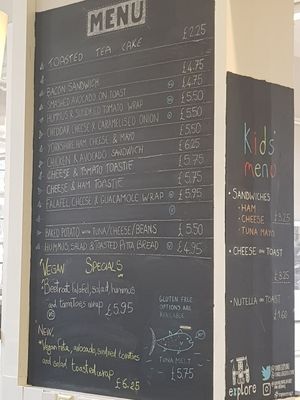 MENU
TOASTED TEA CAKE £2.25
£4.75
BACON SANDWICH £4.75
SMASHED AVOCADO ON TOAST £5.50
HUMMUS & SUNDRIED TOMATO WRAP £5.50
CHEDDAR CHEESE & CARAMELISED ONION £5.50
YORKSHIRE HAM, CHEESE & MAYO £6.25
CHICKEN & AVOCADO SANDWICH £5.75
CHEESE & TOMATO TOASTIE £5.75
CHEESE & HAM TOASTIE £5.95
FALAFEL CHEESE & GUACAMOLE WRAP
BAKED POTATO WITH TUNA/CHEESE/BEANS £5.50
HUMMUS, SALAD & TOASTED PITTA BREAD £4.95
VEGAN SPECIALS
Beetroot falafel, salad, hummus
and tomatoes wrap £5.95
NEW
Vegan Feta, avocado, sundried tomatoes
and salad toasted wrap
£6.25
GLUTEN FREE
OPTIONS ARE
AVAILABLE
TUNA MELT
£5.75
Kids
menu
SANDWICHES
- HAM
- CHEESE £3.25
- TUNA MAYO
CHEESE ON TOAST
£3.25
NUTELLA ON TOAST
£1.60
explore